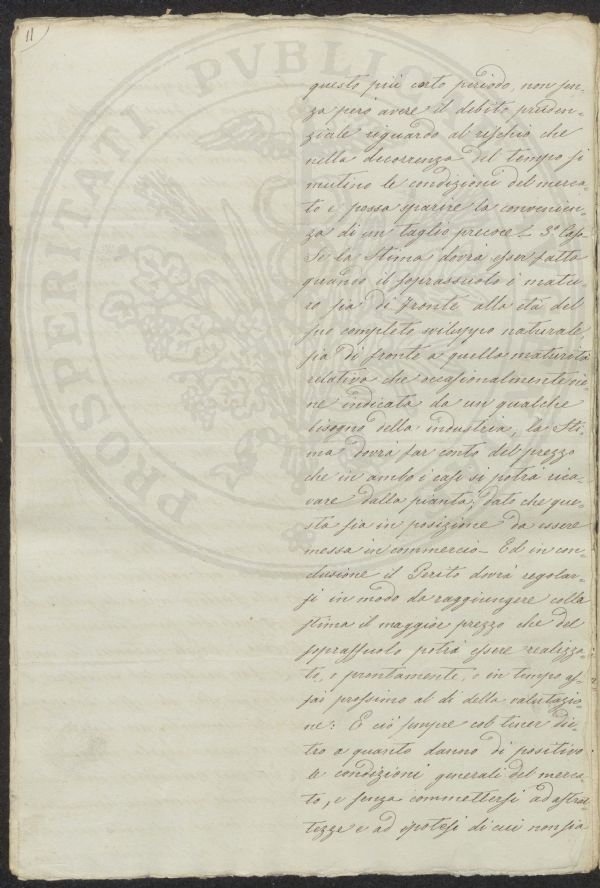 11
PROSPERITATI PVBLIC
questo più corto periodo, non sen-
za però avere il debito pruden-
ziale riguardo al rischio che
nella decorrenza del tempo si
mutino le condizioni del merca-
to e possa sparire la convenien-
za di un taglio precoce – 3º Caso
Se la Stima dovrà esser fatta
quando il soprassuolo è matu-
ro sia di fronte alla età del
suo completo sviluppo naturale
sia di fronte a quella maturità
relativa che occasionalmente vie-
ne indicata da un qualche
bisogno della industria, la Sti-
ma dovrà far conto del prezzo
che in ambo i casi si potrà rica-
vare dalla pianta, dato che que-
sta sia in posizione da essere
messa in commercio – Ed in con-
clusione il Perito dovrà regolar-
si in modo da raggiungere colla
stima il maggior prezzo che del
soprassuolo potrà essere realizza-
to, o prontamente, o in tempo as-
sai prossimo al dì della valutazio-
ne: E ciò sempre col tener die-
tro a quanto danno di positivo
le condizioni generali del merca-
to, e senza commettersi ad astrat-
tezze e ad ipotesi di cui non sia